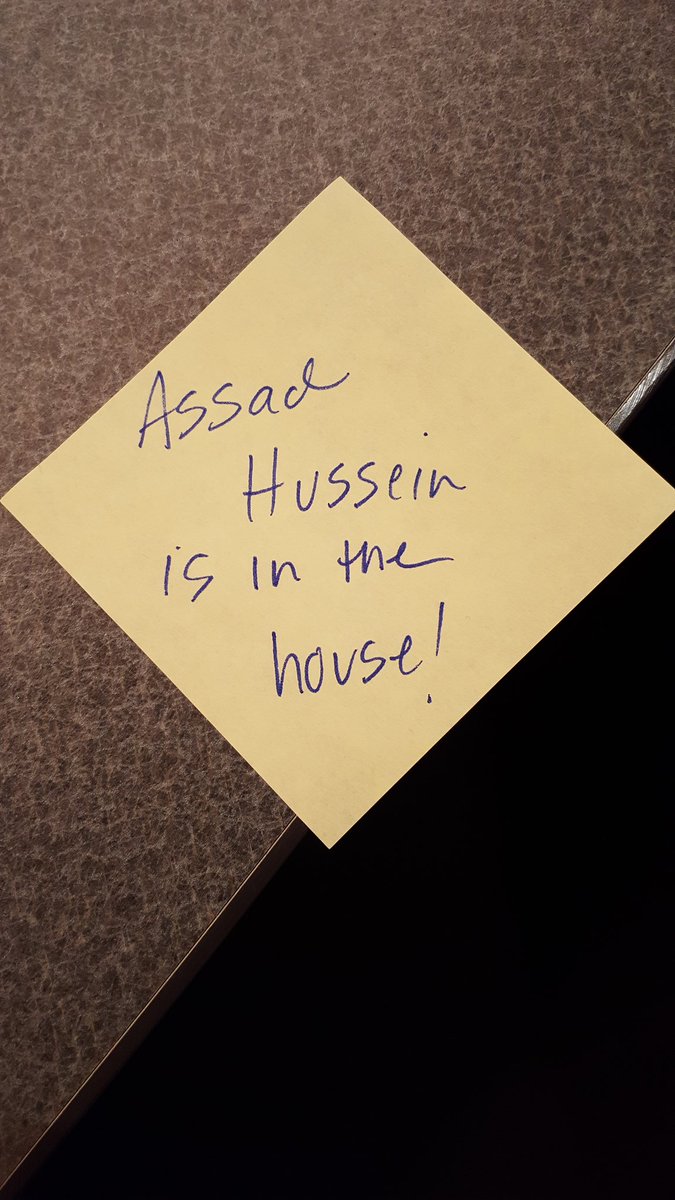 Assad
Hussein
is in the
house!